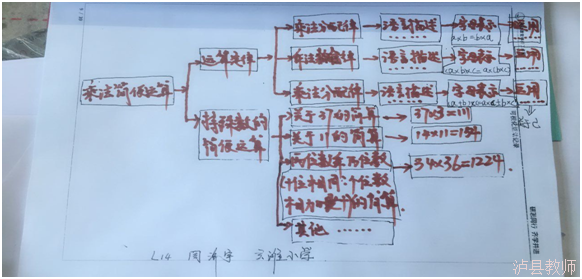 乘法简便运算
运算定律
乘法分配律
语言描述
……
字母表示
a×b=b×a
运用
乘法结合律
语言描述
……
字母表示
(a×b)×c=a×(b×c)
运用
乘法分配律
语言描述
……
字母表示
(a+b)×c=a×c+b×c
运用
特殊数的
简便运算
关于37的简算
37×3=111
关于11的简算
14×11=154
两位数乘两位数
(十位相同,个位数
相加是十)的简算
34×36=1224
其他 ……
L14 周 宇 小学
泸县教师